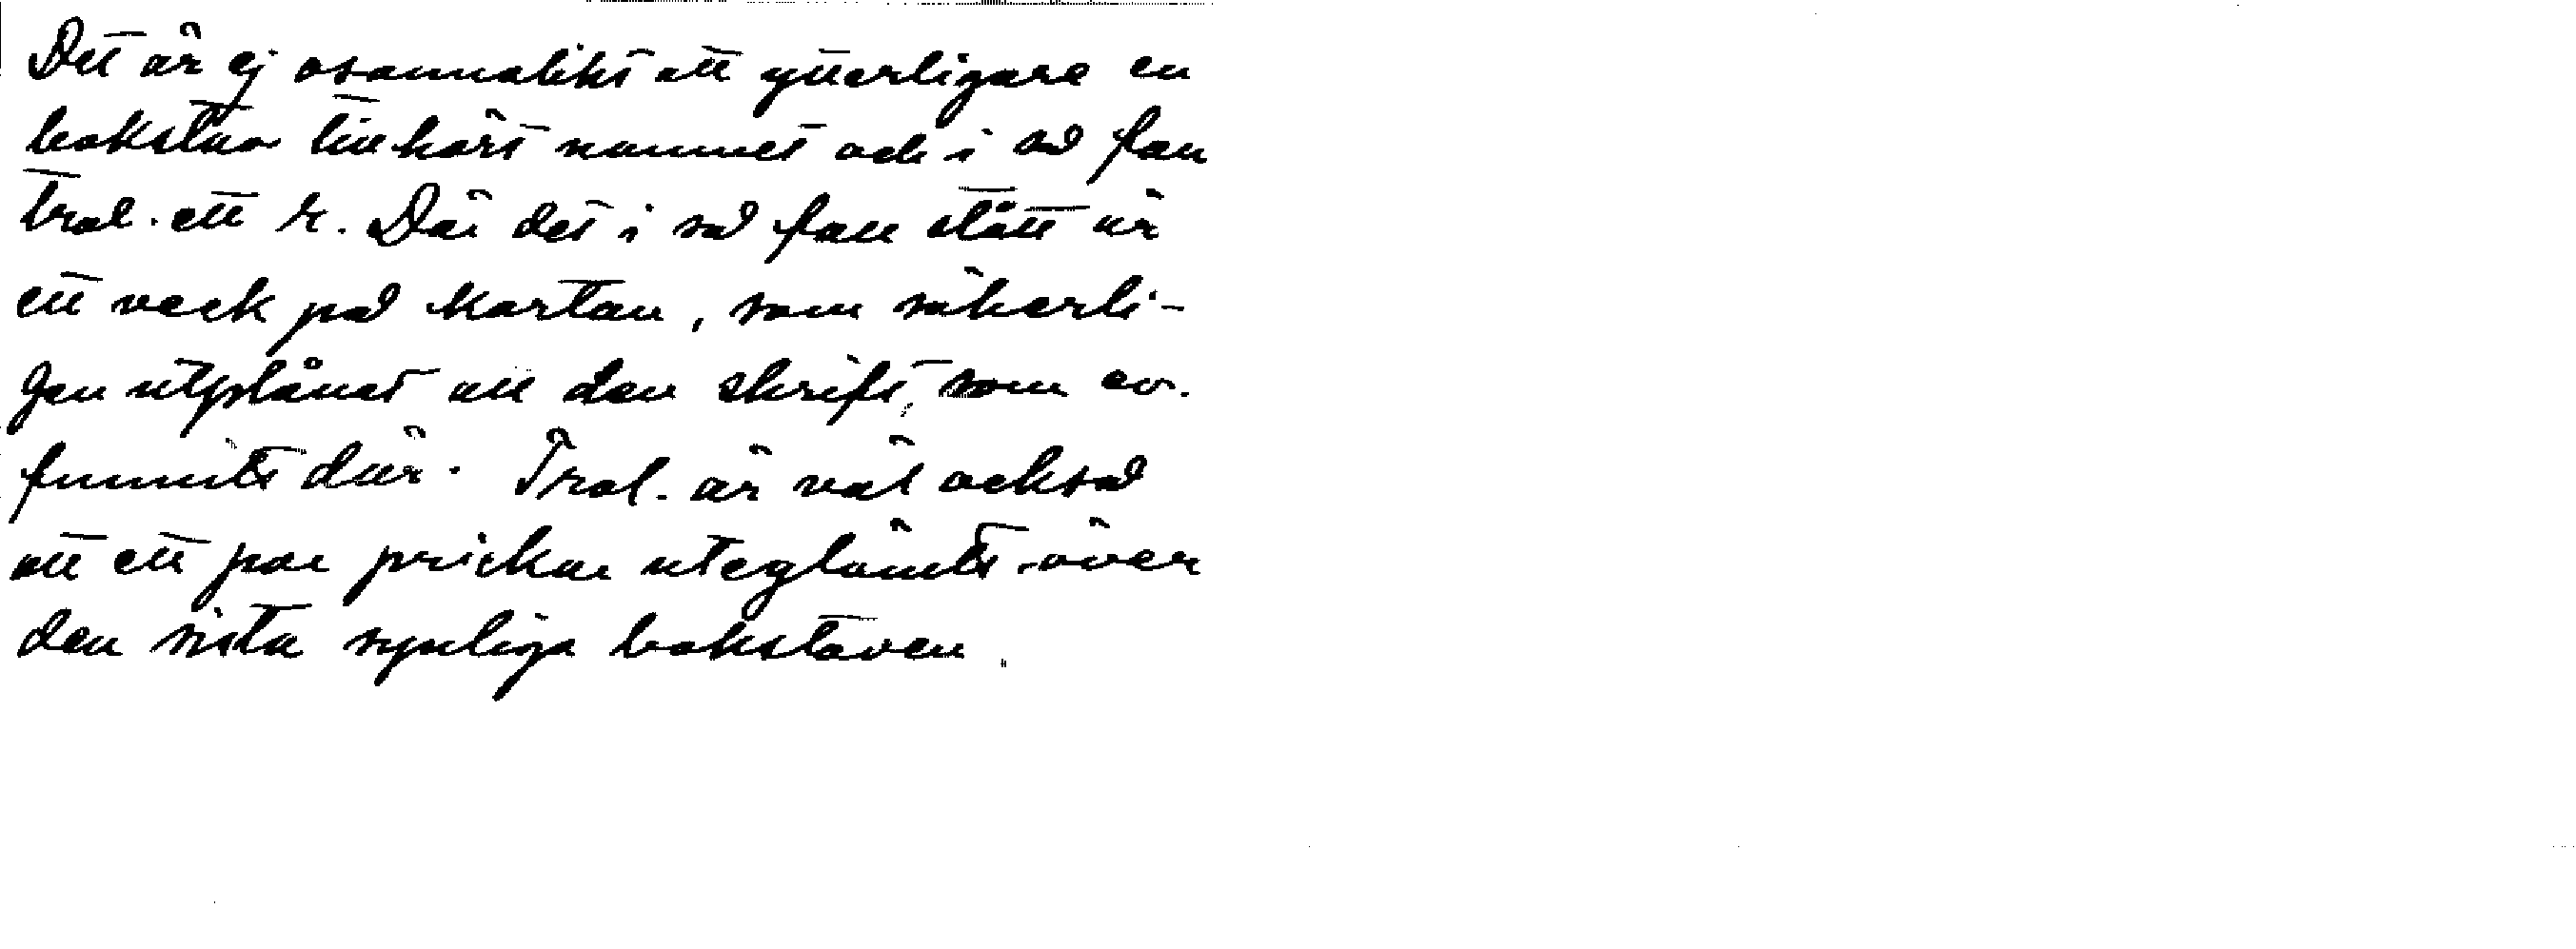 Det är ej osannolikt att ytterligare en
bokstav tillhört namnet och i så fall
trol. ett r. Där det i så fall stått är
ett veck på kartan, som säkerli-
gen utplånat all den skrift, som ev.
funnits där. Trol. är väl också
att ett par prickar uteglömts över
den sista synliga bokstaven.